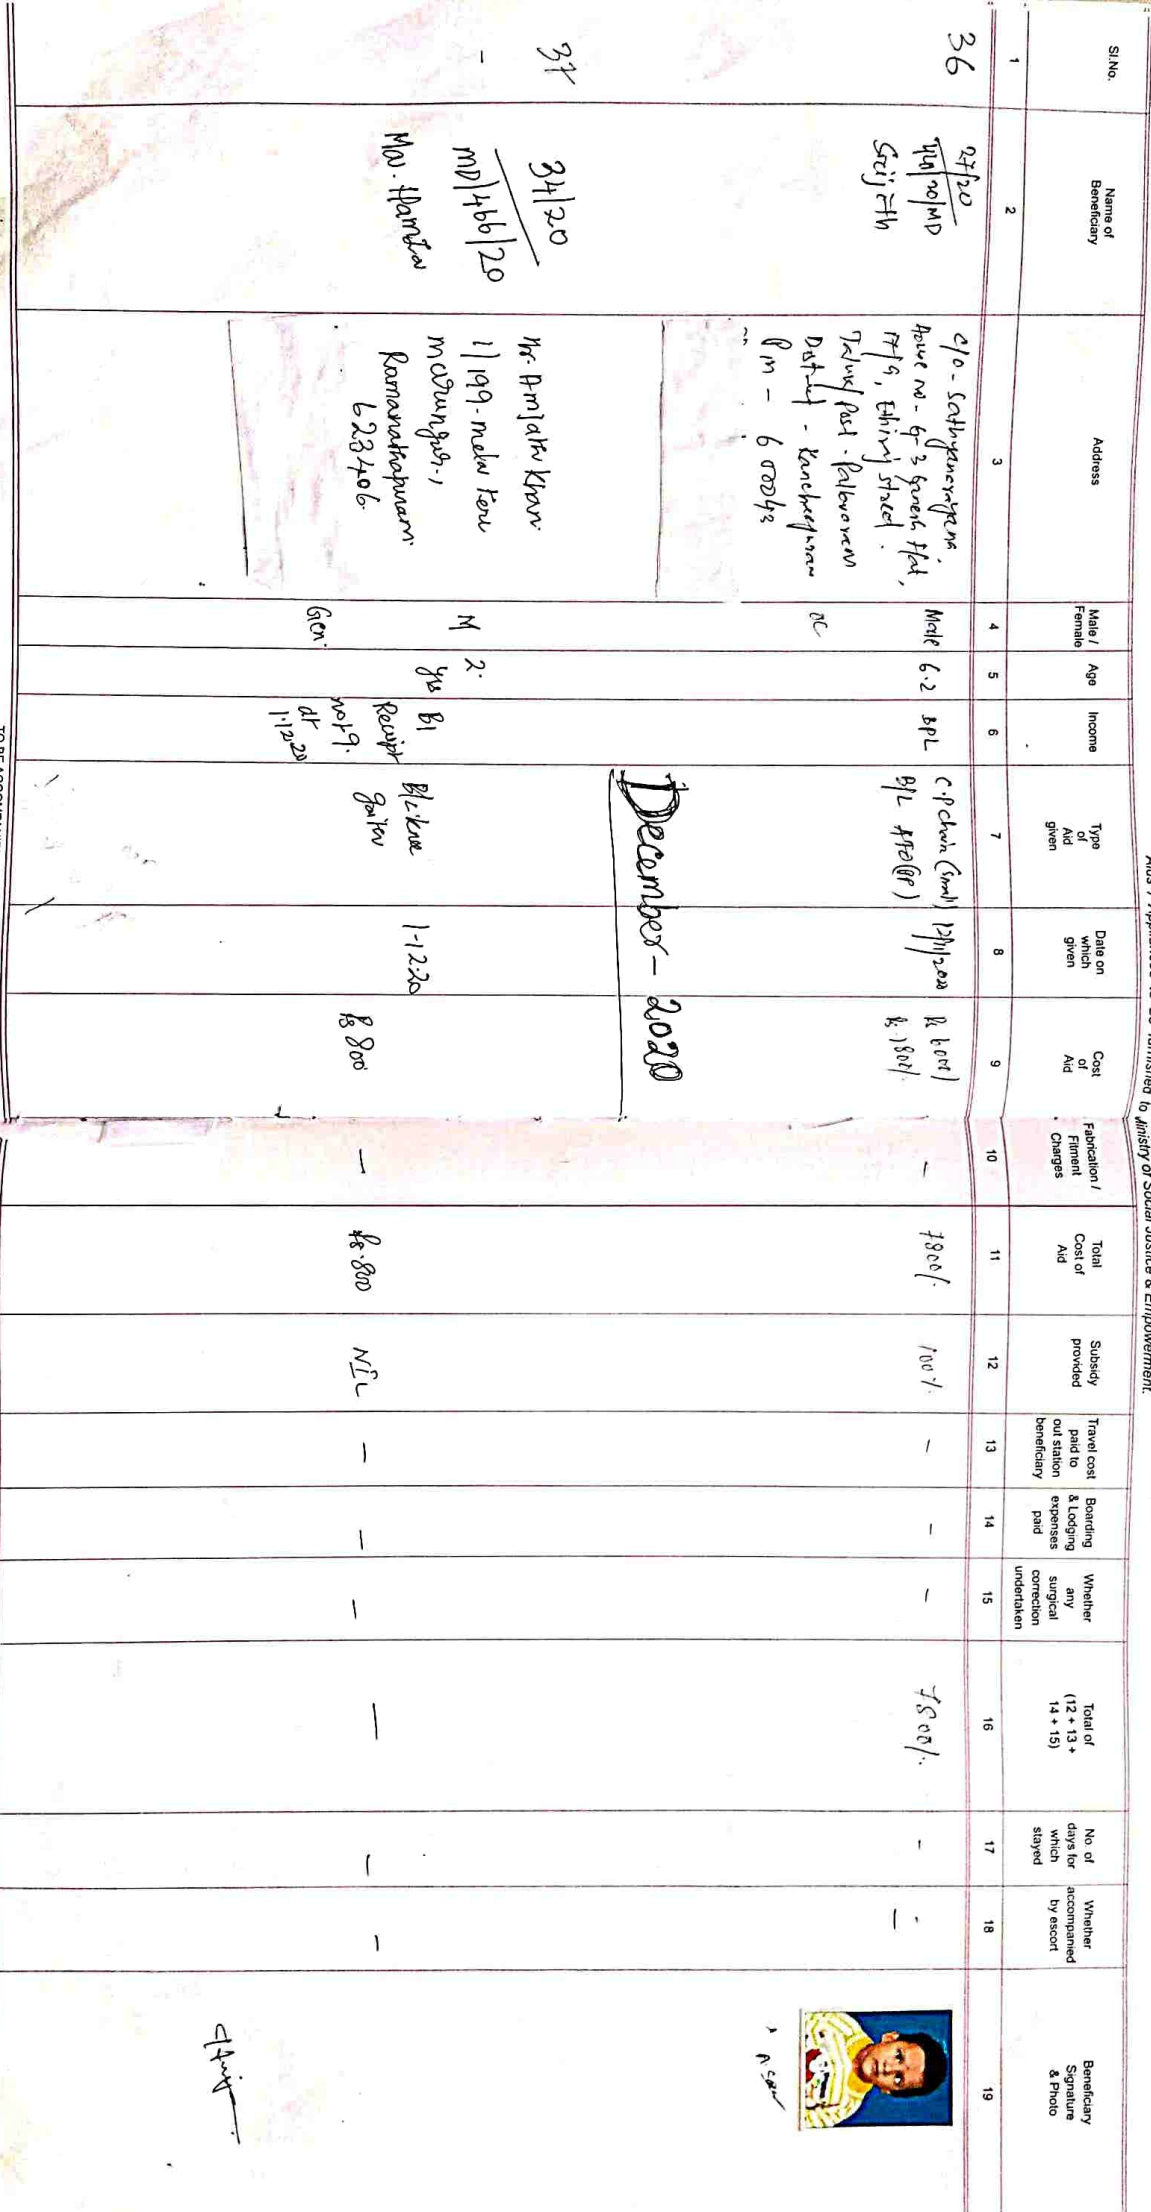 furnished to Ministry of Social Justice & Empowerment.
Sl.No.
Name of
Beneficiary
Address
Male /
Female
Age
Income
Type
of
Aid
given
Date on
which
given
Cost
of
Aid
Fabrication /
Fitment
Charges
Total
Cost of
Aid
Subsidy
provided
Travel cost
paid to
out station
beneficiary
Boarding
& Lodging
expenses
paid
Whether
any
surgical
correction
undertaken
Total of
(12 + 13 +
14 + 15)
No. of
days for
which
stayed
Whether
accompanied
by escort
Beneficiary
Signature
& Photo
1 2 3 4 5 6 7 8 9 10 11 12 13 14 15 16 17 18 19
36
27/20
Srijith
C/O - Sathyanarayana
House no - G-3 Ganesh Flat,
17/9, Ethiraj Street.
Taluk/Post - Pallavaram
District - Kancheepuram
Pin - 600043
Male
OC
6.2
BPL
C.P Chair (Small)
B/L AFO(PP)
12/11/2020
Rs 6000/
Rs 1800/-
-
7800/-
100%
-
-
-
7800/-
-
-
December - 2020
37
-
34/20
MD/466/20
Mr. Amjath Khan
1/199- Mela Teru
Marungur,
Ramanathapuram
623406
M
Gen.
2.
yrs
Receipt
at
1.12.20
B/L knee
gaiter
1-12-20
Rs 800
-
Rs.800
NIL
-
-
-
-
-
-